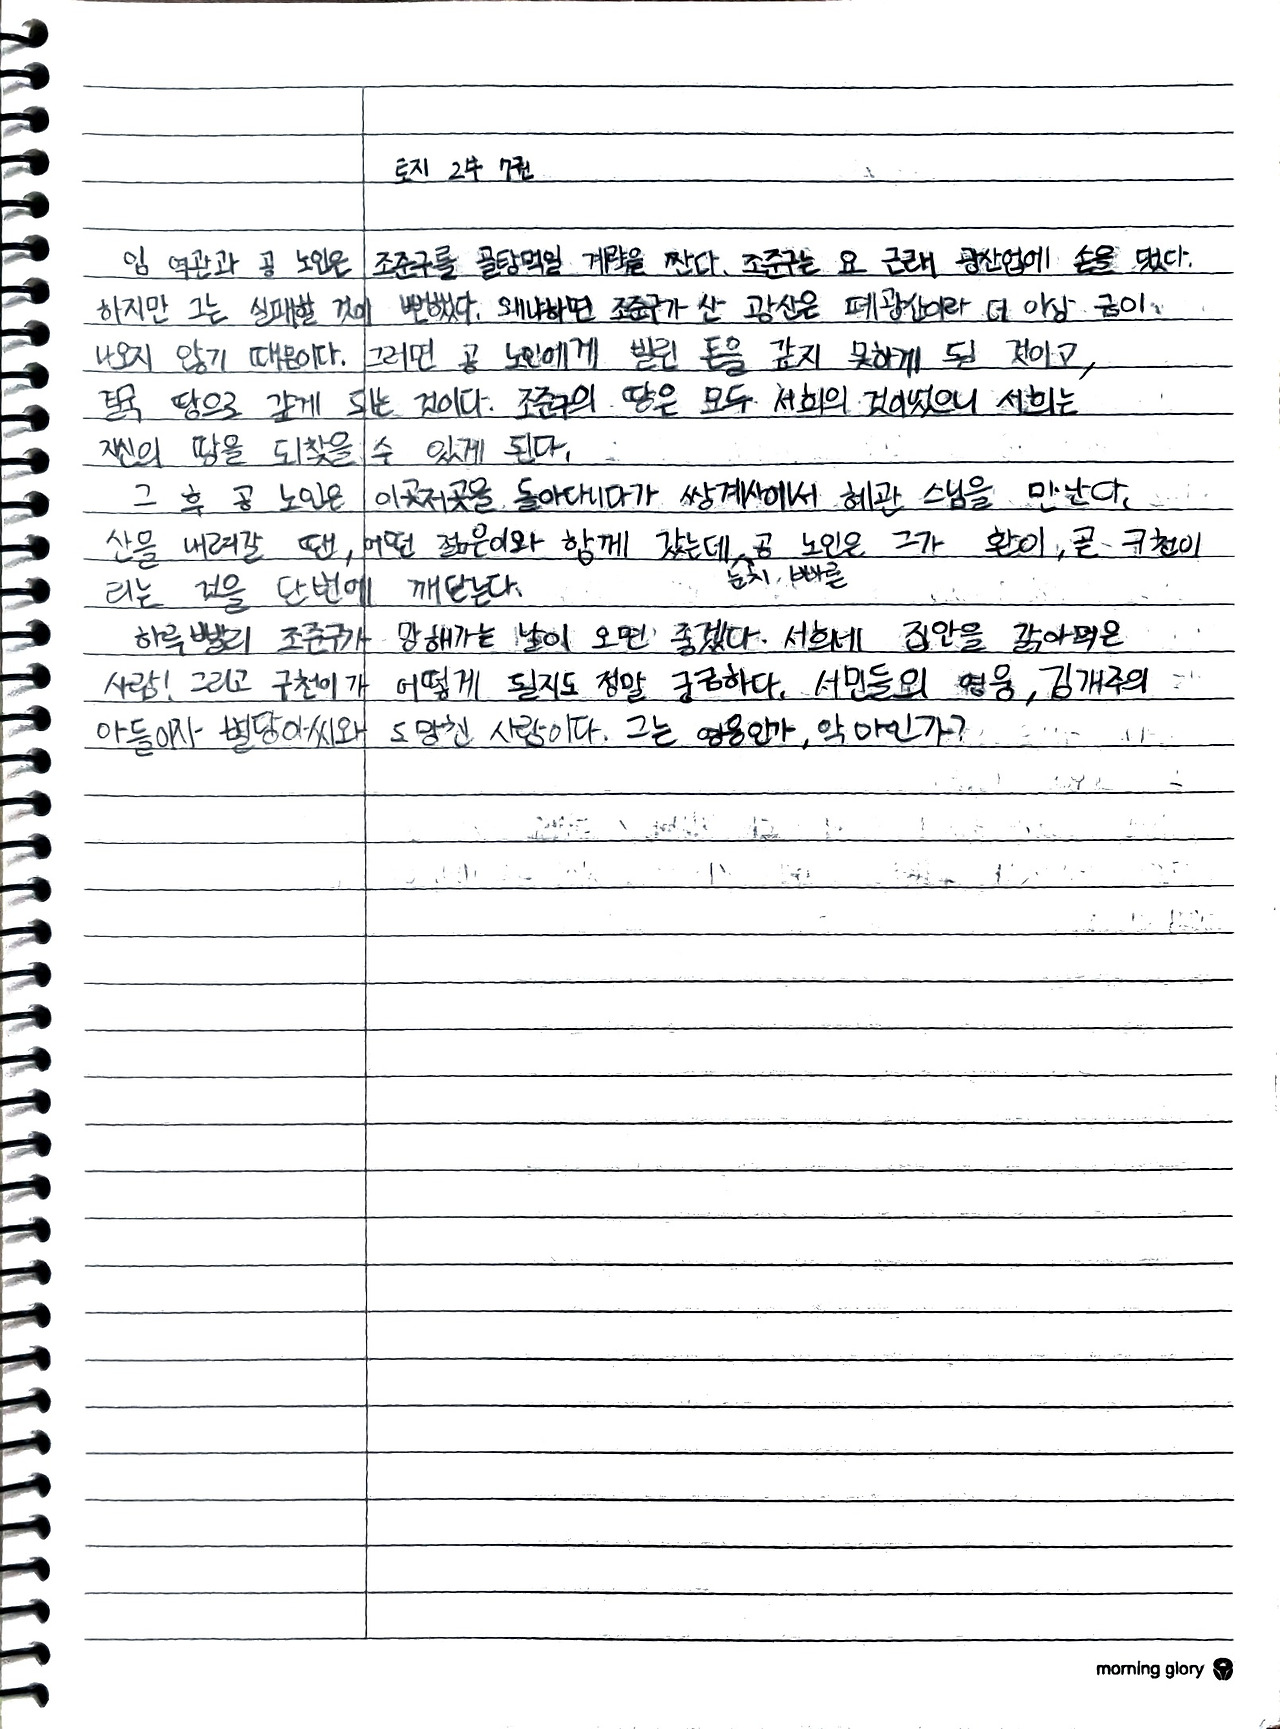 토지 2부 7권
임 역관과 공 노인은 조준구를 골탕먹일 계략을 짠다. 조준구는 요 근래 광산업에 손을 댔다.
하지만 그는 실패할 것이 뻔했다. 왜냐하면 조준구가 산 광산은 폐광산이라 더 이상 금이
나오지 않기 때문이다. 그러면 공 노인에게 빌린 돈을 갚지 못하게 될 것이고,
땅으로 갚게 되는 것이다. 조준구의 땅은 모두 서희의 것이었으니 서희는
자신의 땅을 되찾을 수 있게 된다.
그 후 공 노인은 이곳저곳을 돌아다니다가 쌍계사에서 혜관 스님을 만난다.
산을 내려갈 땐, 어떤 젊은이와 함께 갔는데, 눈치 빠른 공 노인은 그가 환이, 곧 구천이
라는 것을 단번에 깨닫는다.
하루빨리 조준구가 망해가는 날이 오면 좋겠다. 서희네 집안을 갉아먹은
사람! 그리고 구천이가 어떻게 될지도 정말 궁금하다. 서민들의 영웅, 김개주의
아들이자 별당아씨와 도망친 사람이다. 그는 영웅인가, 악마인가?
morning glory